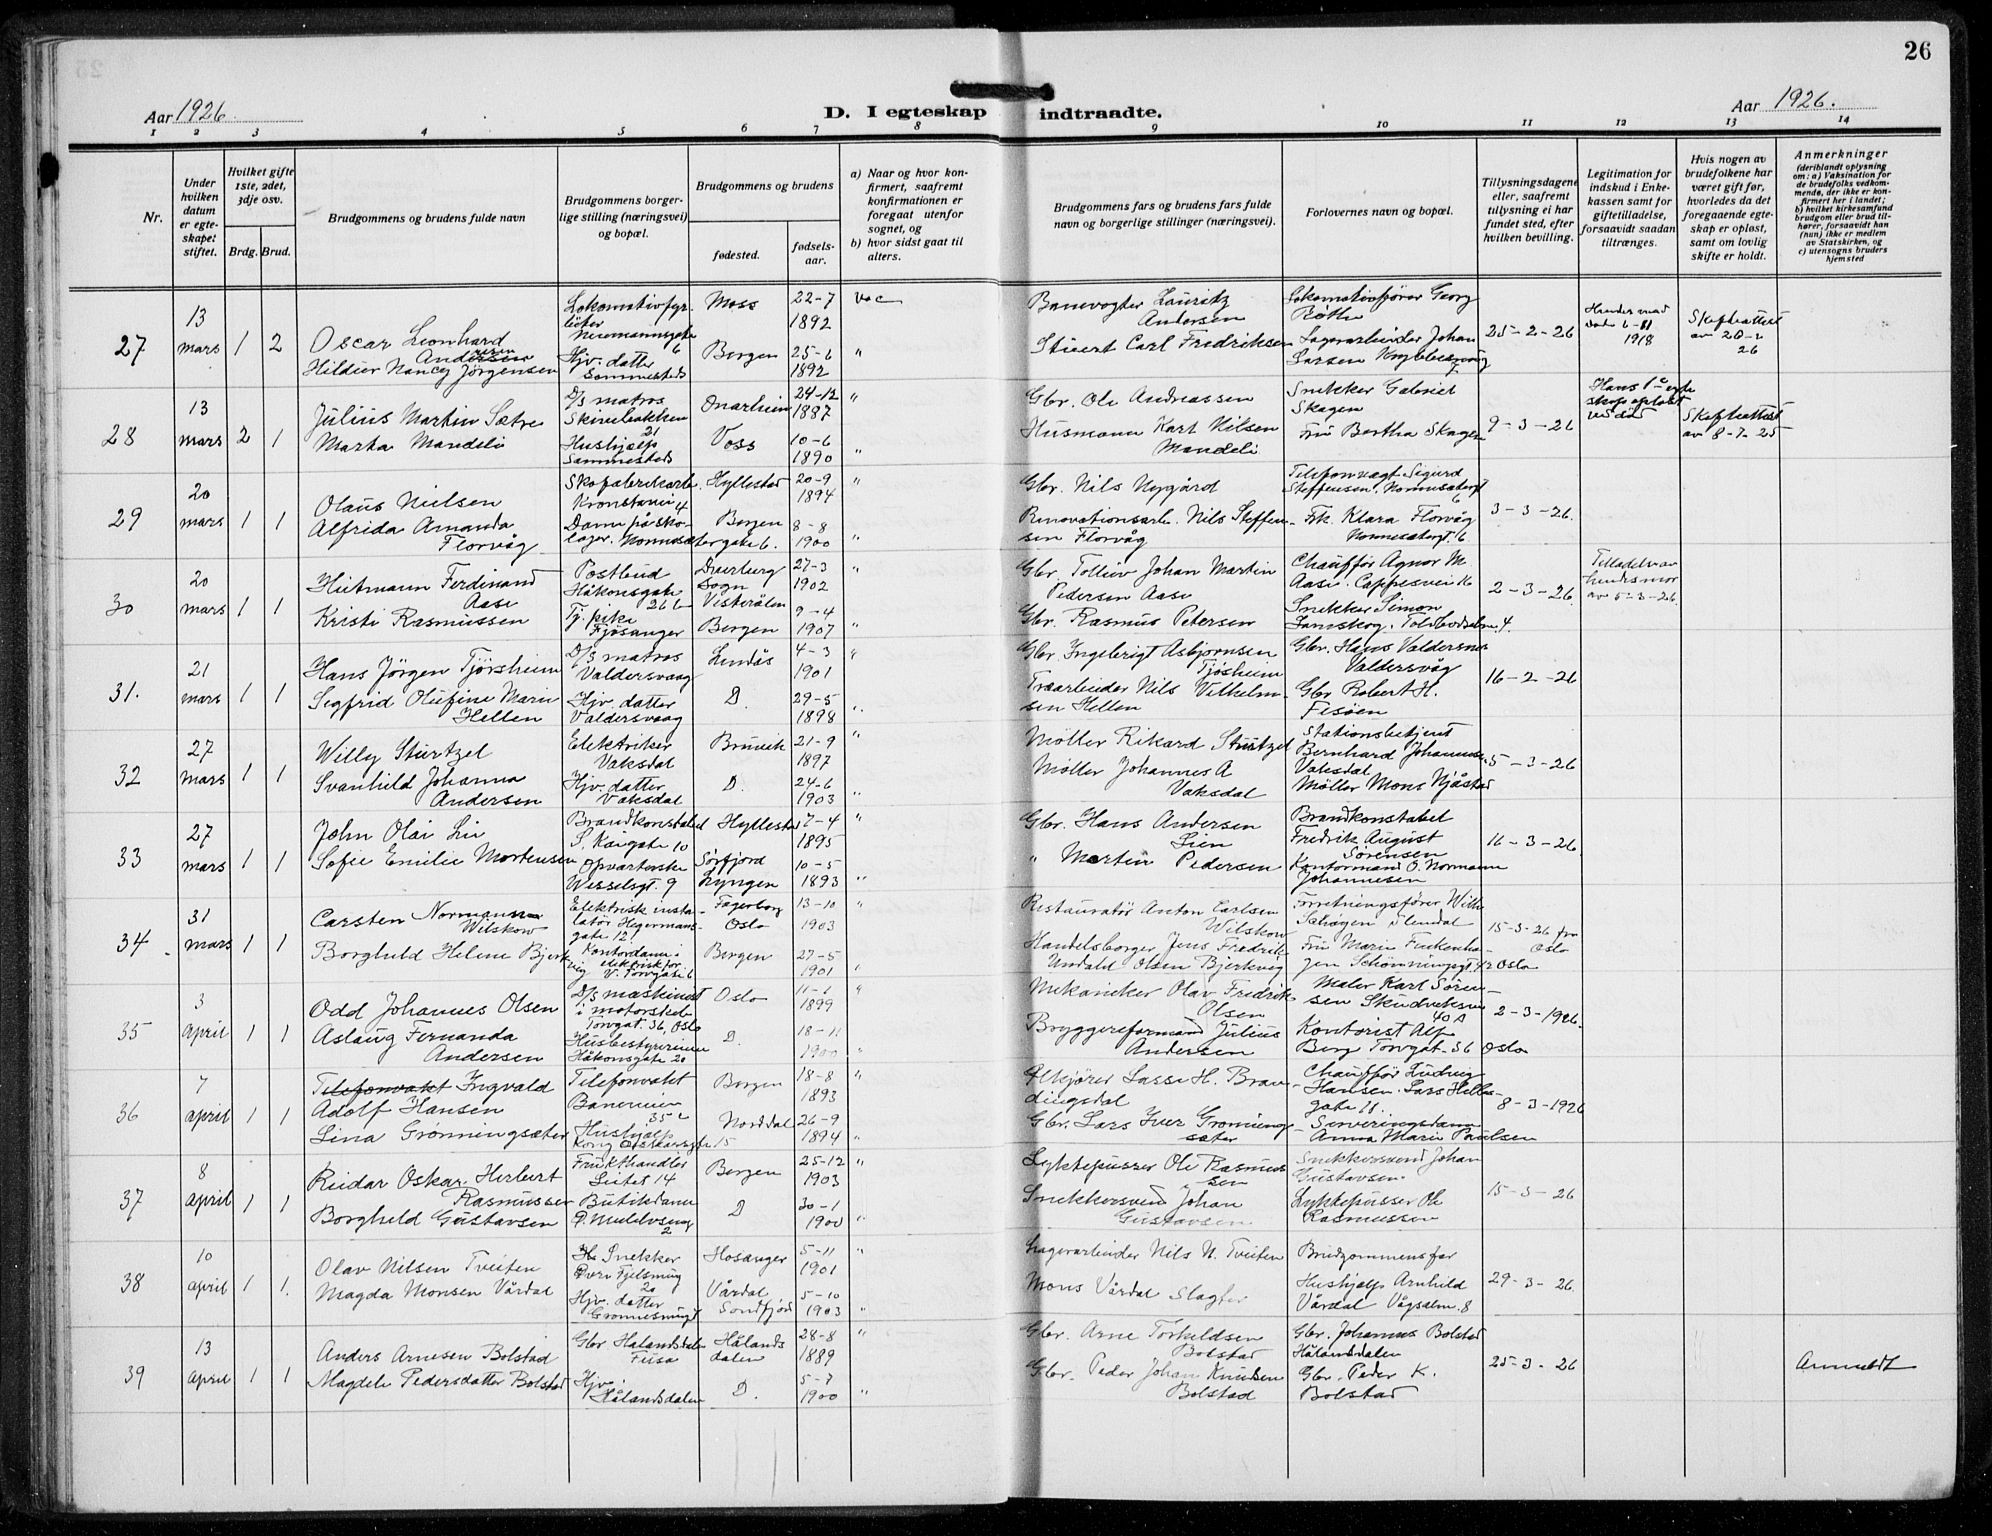 26
Aar 1926
D. I egteskap indtraadte.
Aar 1926.
1 2 3 4 5 6 7 8 9 10 11 12 13 14
Nr.
Under hvilken datum er egteskapet stiftet.
Hvilket gifte 1ste, 2det, 3dje osv.
Brdg. Brud.
Brudgommens og brudens fulde navn
Brudgommens borgerlige stilling (næringsvei) og bopæl.
Brudgommens og brudens
fødested.
fødselsaar.
a) Naar og hvor konfirmert, saafremt konfirmationen er foregaat utenfor sognet, og
b) hvor sidst gaat til alters.
Brudgommens fars og brudens fars fulde navn og borgerlige stillinger (næringsvei).
Forlovernes navn og bopæl.
Tillysningsdagene eller, saafremt tillysning ei har fundet sted, efter hvilken bevilling.
Legitimation for indskud i Enkekassen samt for giftetilladelse, forsaavidt saadan tiltrænges.
Hvis nogen av brudefolkene har været gift før, hvorledes da det foregaaende egteskap er opløst, samt om lovlig skifte er holdt.
Anmerkninger
(deriblandt oplysning om: a) Vaksination for de brudefolks vedkommende, der ikke er konfirmert her i landet; b) hvilket kirkesamfund brudgom eller brud tilhører, forsaavidt han (hun) ikke er medlem av Statskirken, og c) utensogns bruders hjemsted
27 13 mars 1 2
Oscar Leonhard Andersen
Hildur Nancy Jörgensen
Neumannsgate 6
Hjv. datter
Sammesteds
Moss 22-7 1892
Bergen 25-6 1892
Banevogter Lauritz Andersen
Stuert Carl Fredriksen
Lokomotivfører Georg
Lagerarbeider Johan Larsen
25-2-26
1918
Skifteattest av 20-2 26
28 13 mars 2 1
Julius Martin Sætre
Marta Mandeli
D/s matros
Skivebakken 21
Hushjelp
Sammesteds
Onarheim 24-12 1887
Voss 10-6 1890
Gbr. Ole Andreassen
Husmann Karl Nilsen Mandeli
Snekker Gabriel Skagen
Fru Bertha Skagen
9-3-26
Skifteattest av 8-7-25
29 20 mars 1 1
Olaus Nielsen
Alfrida Amanda Florvåg
Skofabrikarb.
Kronstavei 4
Hyllestad 20-9 1894
Bergen 8-8 1900
Gbr. Nils Nygård
Renovationsarb. Nils Steffensen Florvåg
Telefonvagt Sigurd Steffensen, Nonnesætergt 6
Frk. Klara Florvåg
Nonnesætergt. 6
3-3-26.
30 20 mars 1 1
Hartmann Ferdinand Aase
Kristi Rasmussen
Postbud
Håkonsgate 26 b
Tj. pike
Fjøsanger
Dverberg Sogn Vesterålen 27-3 1902
Bergen 9-4 1907
Gbr. Tollev Johan Martin Pedersen Aase
Gbr. Rasmus Petersen
Chauffør Agnor M. Aase. Cappesvei 16
Snekker Simon
2-3-26.
av 5-3-26.
31. 21 mars 1 1
Hans Jörgen Tjörsheim
Segfrid Olufine Marie Hellen
D/s matros
Valdersvaag
Hjv. datter
Valdersvaag
Lindås 4-3 1901
D. 29-5 1898
Gbr. Ingebrigt Asbjørnsen Tjösheim
Træarbeider Nils Vilhelmsen Hellen
Gbr. Hans Valdersnes
Valdersvåg
Gbr Robert H.
Fesöen
16-2-26
32 27 mars 1 1
Willy Sturtzel
Svanhild Johanna Andersen
Elektriker
Vaksdal
Hjv. datter
Vaksdal
Bruvik 21-9 1897
D. 24-6 1903
Möller Rikard Sturtzel
Möller Johannes A Vaksdal
Stationsbetjent Bernhard Johannesen Vaksdal
Möller Mons Njåstad
5-3-26
33 27 mars 1 1
John Olai Lie
Sofie Emilie Mortensen
Brandkonstabel
S. Kaigate 10
Opvarterske
Wesselsgt. 9
Hyllestad 17-4 1895
Sörfjord Lyngen 10-5 1893
Gbr. Hans Andersen Lien
" Morten Pedersen
Brandkonstabel Fredrik August Sörensen
Kontormand O. Normann Johannesen
16-3-26.
34. 31 mars 1 1
Carsten Normann Wilskow
Borghild Helene Bjerkvig
Elektrisk installatör Hegermannsgate 12.
Kontordame i elektrisk for.
V. Torvgate 6
Fagerborg Oslo 13-10 1903
Bergen 27-5 1901
Restauratör Anton Carlsen Wilskow
Handelsborger Jens Fredrik Undahl Olsen Bjerkvig
Forretningsfører Wilh.
Fru Marie Finkenhagen Schönningsgt. 42 Oslo
15-3-26 fra Oslo
35 3 April 1 1
Odd Johannes Olsen
Aslaug Fernanda Andersen
D/s maskinist i motorskib
Torvgat. 36, Oslo
Husbestyrerinne
Håkonsgate 20
Oslo 11-1 1899
D. 18-11 1900
Mekaniker Olav Fredrik Olsen
Bryggeriformand Julius Andersen
Maler Karl Sörensen
40 A
Kontorist Alf Berg Torvgat. 36 Oslo
2-3-1926.
36 7 april 1 1
Telefonvakt Ingvald Adolf Hansen
Lina Grönningsæter
Telefonvakt
Baneveien 35 c
Hushjelp
Kong Oscarsgate 15
Bergen 18-8 1893
Norddal 26-9 1894
Lasse H. Brandingsdal
Gbr. Lars Iver Gronningsæter
Chauffør Ludvig Hansen. Lars Hillesgate 11.
Serveringsdame Anna Marie Paulsen
8-3-1926
37 8 april 1 1
Reidar Oskar Herbert Rasmussen
Borghild Gustavsen
Frukthandler
Leitet 14
Butikdame
Bergen 25-12 1903
D 30-1 1900
Lyktepusser Ole Rasmussen
Snekkersvend Johan Gustavsen
Snekkersvend Johan Gustavsen.
Lyktepusser Ole Rasmussen
15-3-26
38 10 april 1 1.
Olav Nilsen Tveiten
Magda Monsen Vårdal
Snekker
20
Hjv. datter
Hosanger 5-11 1901
Vårdal Sondfjord 5-10 1903
Lagerarbeider Nils N. Tveiten
Mons Vårdal Slagter
Brudgommens far
Hushjelp Arnhild Vårdal Vågsalm. 8
29-3-26.
39 13 april 1 1
Anders Arnesen Bolstad
Magdele Pedersdatter Bolstad
Gbr Hålandsdalen
Fusa
Hjv.
Hålandsdalen
Hålandsdalen 28-8 1889
D. 5-7 1900
Gbr. Arne Torkeldsen Bolstad
Gbr. Peder Johan Knudsen Bolstad
Gbr. Johannes Bolstad
Hålandsdalen
Gbr. Peder K. Bolstad
25-3-26
Anmeldt